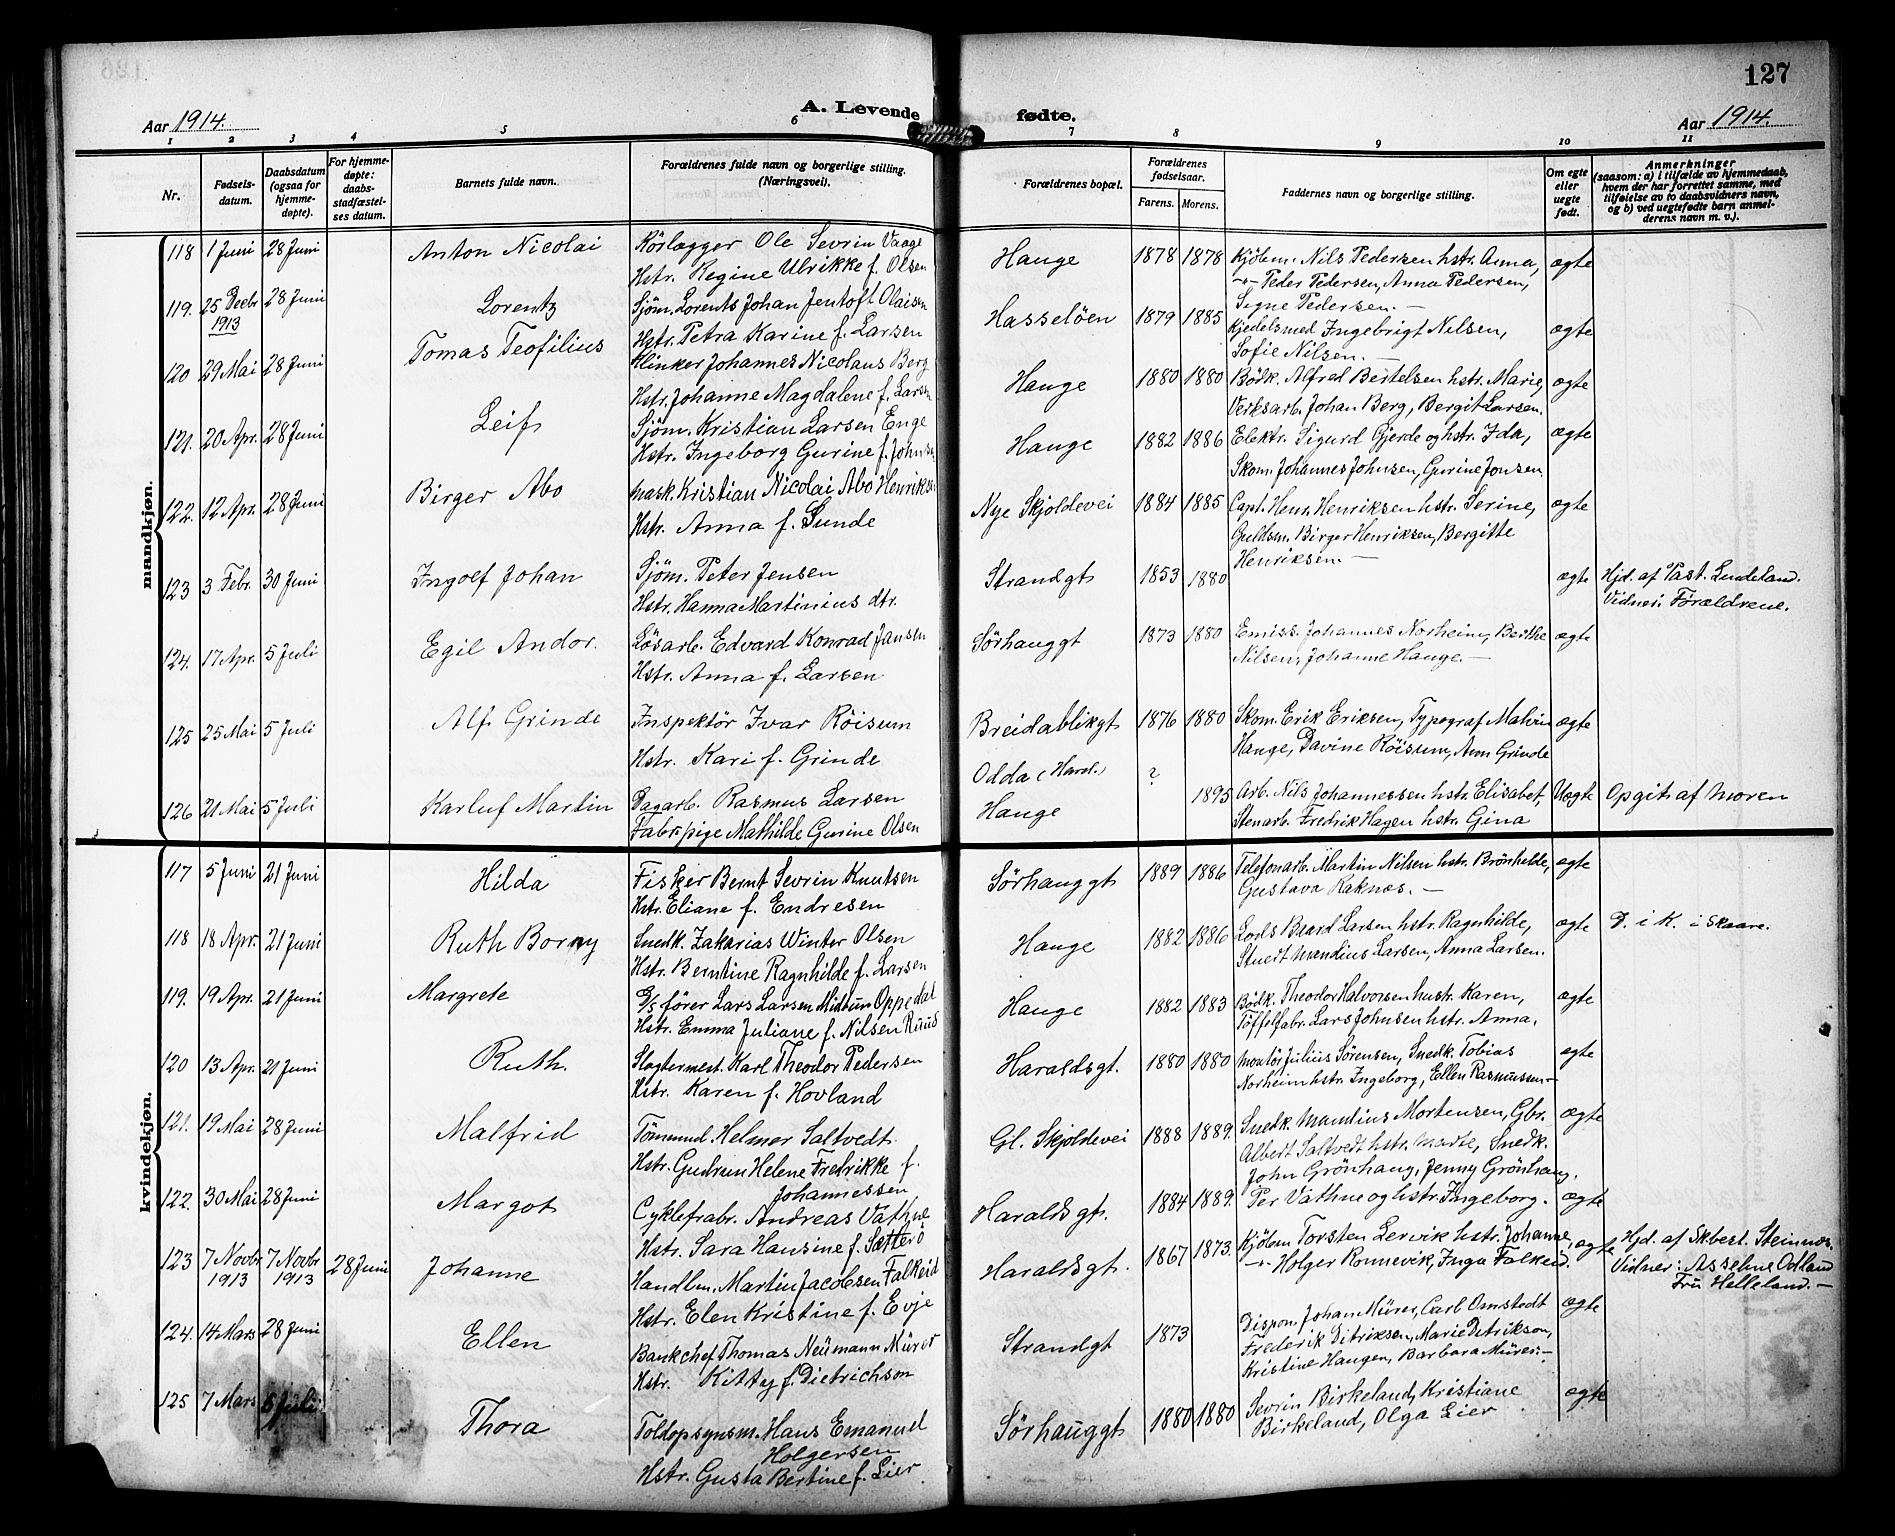 127
A. Levende fødte.
Aar 1914.
Aar 1914.
1 2 3 4 5 6 7 8 9 10 11
Nr.
Fødsels-
datum.
Daabsdatum
(ogsaa for
hjemme-
døpte).
For hjemme-
døpte:
daabs-
stadfæstel-
ses datum.
Barnets fulde navn.
Forældrenes fulde navn og borgerlige stilling.
(Næringsvei).
Forældrenes bopæl.
Forældrenes
fødselsaar.
Farens. Morens.
Faddernes navn og borgerlige stilling.
Om egte
eller
uegte
født.
Anmerkninger
(saasom: a) i tilfælde av hjemmedaab,
hvem der har forrettet samme, med
tilføielse av to daabsvidners navn,
og b) ved uegtefødte barn anmel-
derens navn m. v.).
mandkjøn.
118 1 Juni 28 Juni Anton Nicolai Rörlægger Ole Sevrin Vaage Hauge 1878 1878 Kjöbm. Nils Pedersen hstr. Anna, ægte
Hstr. Regine Ulrikke f. Olsen -"- Peder Pedersen, Anna Pedersen,
Signe Pedersen.
119. 25 Decbr 28 Juni Lorentz Sjöm. Lorents Johan Jentoft Olaisen Hasselöen 1879 1885 Kjedelsmed Ingebrigt Nilsen, ægte
1913 Hstr. Petra Karine f. Larsen Sofie Nilsen.
120 29 Mai 28 Juni Tomas Teofilius Klinker Johannes Nicolaus Berg Hauge 1880 1880 Bödk. Alfred Bertelsen hstr. Marie, ægte
Hstr. Johanne Magdalene f. Larsen Verksarb. Johan Berg, Bergit Larsen.
121. 20 Apr. 28 Juni Leif Sjöm. Kristian Larsen Enge Hauge 1882 1886 Elektr. Sigurd Gjerde og hstr. Ida, ægte
Hstr. Ingeborg Gurine f. Johnsen Skom. Johannes Johnsen, Gurine Jonsen.
122. 12 Apr. 28 Juni Birger Abo Mask. Kristian Nicolai Abo Henriksen Nye Skjoldevei 1884 1885 Capt. Henr. Henriksen hstr. Serine, ægte
Hstr. Anna f. Sunde Guldsm. Birger Henriksen, Bergitte
Henriksen.
123 3 Febr. 30 Juni Ingolf Johan Sjöm. Peter Jensen Strandgt 1853 1880 ægte Hjd. af Past. Lindeland.
Hstr. Hanna Martinius dtr. Vidner: Forældrene.
124. 17 Apr. 5 Juli Egil Andor. Lösarb. Edvard Konrad Jansen Sörhauggt 1873 1880 Emiss. Johannes Norheim, Berthe ægte
Hstr. Anna f. Larsen Nilsen, Johanne Hauge.
125 25 Mai 5 Juli Alf Grinde Inspektör Ivar Röisum Breidablikgt 1876 1880 Skom. Erik Eriksen, Typograf Malvin ægte
Hstr. Kari f. Grinde Hauge, Davine Röisum, Ann Grinde
126 21 Mai 5 Juli Karluf Martin Dagarb. Rasmus Larsen Odda (Hard.) ? 1895 Arb. Nils Johannessen hstr. Elisabet, Uægte Opgit af Moren
Fabrpige Mathilde Gurine Olsen Hauge Stenarb. Fredrik Hagen hstr. Gina
kvindekjøn.
117 5 Juni 21 Juni Hilda Fisker Bernt Sevrin Knutsen Sörhauggt 1889 1886 Telefonarb. Martin Nilsen hstr. Brönhilde, ægte
Hstr. Eliane f. Endresen Gustava Raknes.
118 18 Apr. 21 Juni Ruth Borny Snedk. Zakarias Winter Olsen Hauge 1882 1886 Lods Baard Larsen hstr. Ragnhilde, ægte D. i K. i Skaare.
Hstr. Berntine Ragnhilde f. Larsen Stuert Mandius Larsen, Anna Larsen.
119. 19 Apr. 21 Juni Margrete D/S förer Lars Larsen Midtun Oppedal Hauge 1882 1883 Bödk. Theodor Halvorsen hustr. Karen, ægte
Hstr. Emma Juliane f. Nilsen Ruud Töffelfabr. Lars Johnsen hstr. Anna.
120 13 Apr. 21 Juni Ruth. Slagtermest. Karl Theodor Pedersen Haraldsgt. 1880 1880 Montör Julius Sörensen, Snedk. Tobias ægte
Hstr. Karen f. Hovland Norheim hstr. Ingeborg, Ellen Rasmussen
121. 19 Mai 28 Juni Malfrid Tömmermd. Helmer Saltvedt Gl. Skjoldevei 1888 1889. Snedk. Mandius Mortensen, Gbr. ægte
Hstr. Gudrun Helene Fredrikke f. Albert Saltvedt hstr. Marte, Snedk.
Johannessen John Grönhaug, Jenny Grönhaug.
122. 30 Mai 28 Juni Margot Cyklefabr. Andreas Vathne Haraldsgt. 1884 1889. Per Vathne og hstr. Ingeborg. ægte
Hstr. Sara Hansine f. Sætterö
123 7 Novbr 7 Novbr 28 Juni Johanne Handlm. Martin Jacobsen Falkeid Haraldsgt. 1867 1873. Kjöbm Torsten Lervik hstr. Johanne, ægte Hjd. af Skbest. Steinnes.
1913 1913 Hstr. Elen Kristine f. Evje -"- Holger Rönnevik, Inga Falkeid. Vidner: Asseline Odland
Fru Helleland.
124. 14 Mars 28 Juni Ellen Bankchef Thomas Neümann Mürer Strandgt 1873 Dispon. Johan Mürer, Carl Omstedt ægte
Hstr. Kitty f. Dietrichson Frederik Ditriksen, Marie Ditrikson,
Kristine Haugen, Barbara Mürer.
125 7 Mars 5 Juli Thora Toldopsynsm. Hans Emanuel Sörhauggt 1880 1880 Sevrin Birkeland, Kristiane ægte
Holgersen Birkeland, Olga Eier
Hstr. Gusta Bertine f. Eier